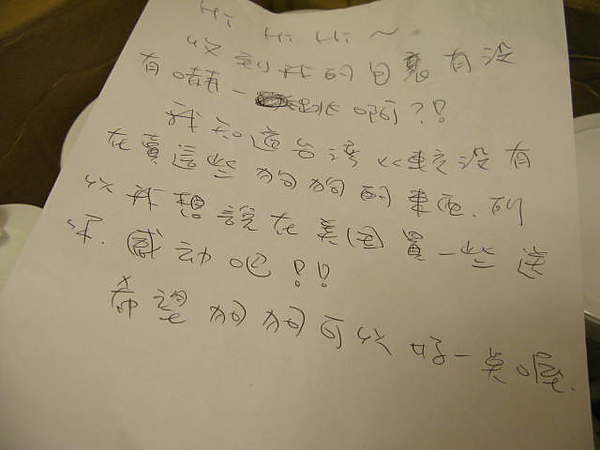 Hi Hi Hi ~
收到我的包裹有沒
有嚇一跳啊?!!
我知道台灣比較沒有
在賣這些狗狗的東西.所
以我想說在美国買一些送
你.感动吧!!!
希望狗狗可以好一点喔.